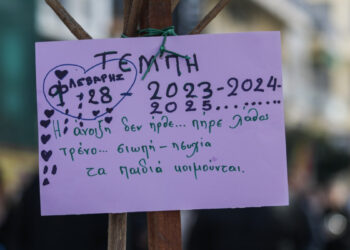 ΤΕΜΠΗ
ΦΛΕΒΑΡΗΣ
'28 - 2023-2024-
2025........
Η άνοιξη δεν ήρθε... πήρε λάθος
τρένο... σιωπή - ησυχία
τα παιδιά κοιμούνται.